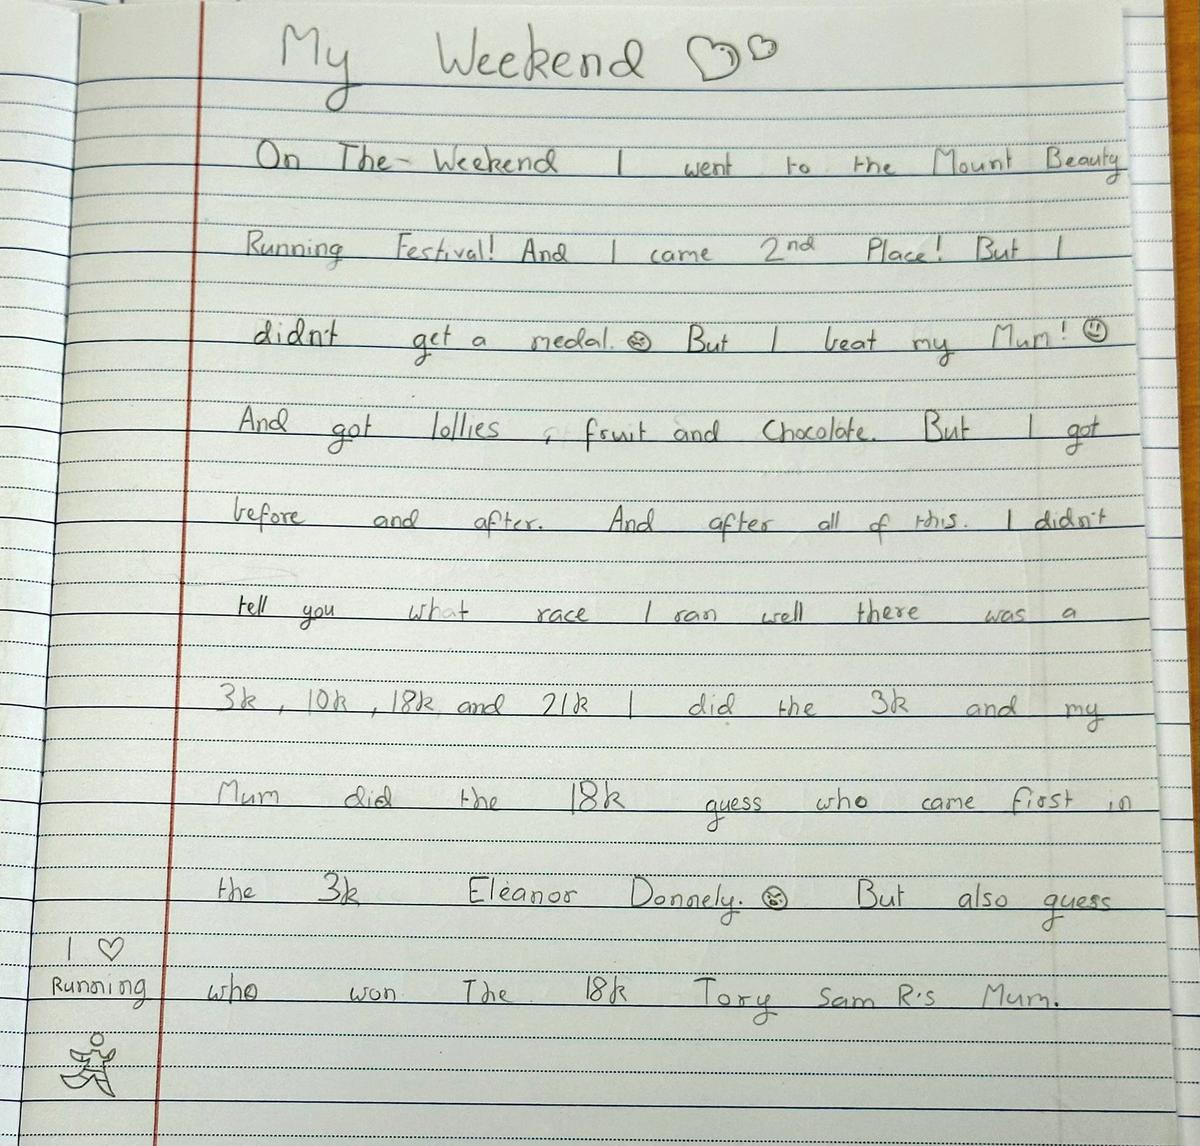 My Weekend
On The- Weekend I went to the Mount Beauty
Running Festival! And I came 2nd Place! But I
didn't get a medal. But I beat my Mum!
And got lollies , fruit and Chocolate. But I got
before and after. And after all of this. I didn't
tell you what race I ran well there was a
3k, 10k, 18k and 21k I did the 3k and my
Mum did the 18k guess who came first in
the 3k Eleanor Donnely. But also guess
who won The 18k Tory Sam R's Mum.
I ♡
Running